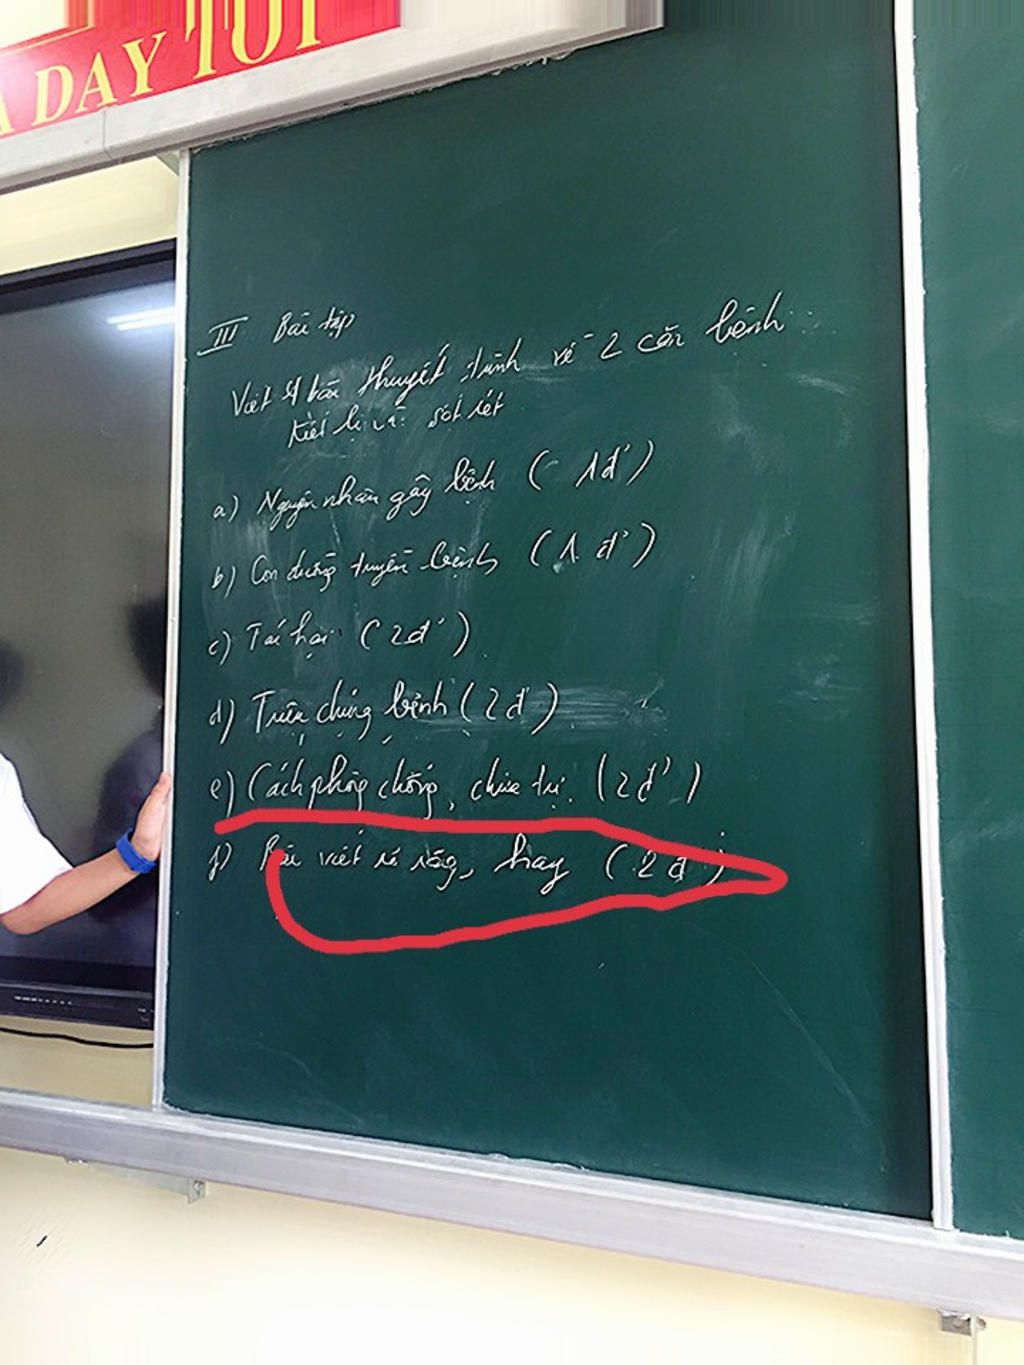 DAY TỐT
III Bài tập
Viết 1 bài thuyết trình về 2 căn bệnh
kiết lị và sốt rét
a) Nguyên nhân gây bệnh (1đ)
b) Con đường truyền bệnh (1đ)
c) Tác hại (2đ)
d) Triệu chứng bệnh (2đ)
e) Cách phòng chống, chữa trị. (2đ)
f) Bài viết rõ ràng, hay (2đ)